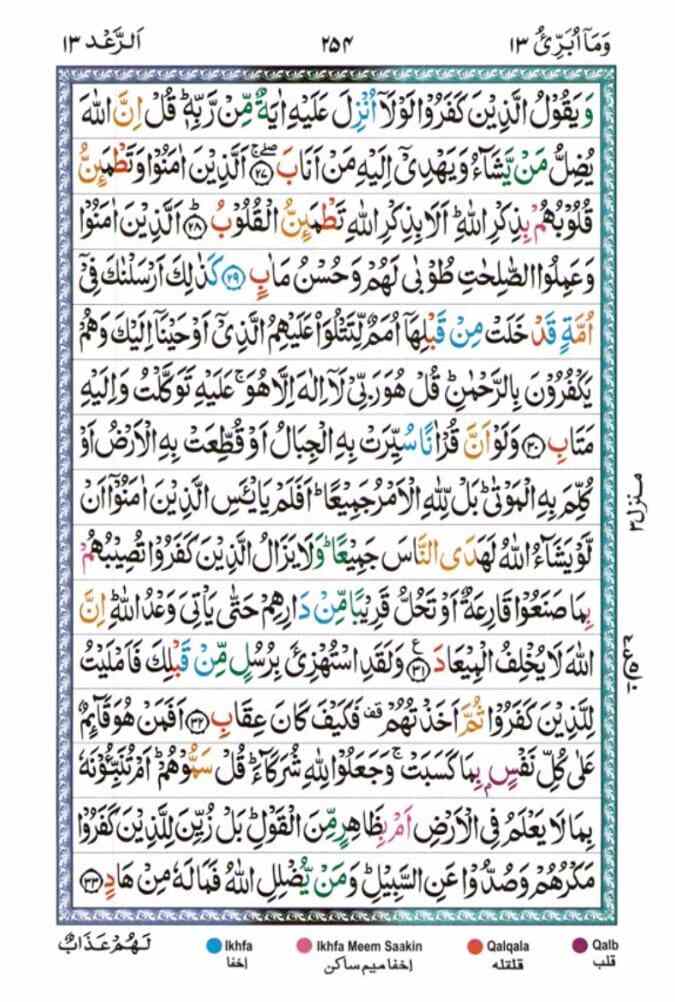 وَمَآ اُبَرِّئُ ١٣
٢٥٤
اَلرَّعْد ١٣
وَيَقُوْلُ الَّذِيْنَ كَفَرُوْا لَوْلَاۤ اُنْزِلَ عَلَيْهِ اٰيَةٌ مِّنْ رَّبِّهٖ ؕ قُلْ اِنَّ اللّٰهَ
يُضِلُّ مَنْ يَّشَآءُ وَيَهْدِيْۤ اِلَيْهِ مَنْ اَنَابَ ۖۚ ﴿٢٧﴾ اَلَّذِيْنَ اٰمَنُوْا وَتَطْمَئِنُّ
قُلُوْبُهُمْ بِذِكْرِ اللّٰهِ ؕ اَلَا بِذِكْرِ اللّٰهِ تَطْمَئِنُّ الْقُلُوْبُ ؕ ﴿٢٨﴾ اَلَّذِيْنَ اٰمَنُوْا
وَعَمِلُوا الصّٰلِحٰتِ طُوْبٰى لَهُمْ وَحُسْنُ مَاٰبٍ ﴿٢٩﴾ كَذٰلِكَ اَرْسَلْنٰكَ فِيْۤ
اُمَّةٍ قَدْ خَلَتْ مِنْ قَبْلِهَاۤ اُمَمٌ لِّتَتْلُوَا۟ عَلَيْهِمُ الَّذِيْۤ اَوْحَيْنَاۤ اِلَيْكَ وَهُمْ
يَكْفُرُوْنَ بِالرَّحْمٰنِ ؕ قُلْ هُوَ رَبِّيْ لَاۤ اِلٰهَ اِلَّا هُوَ ۚ عَلَيْهِ تَوَكَّلْتُ وَاِلَيْهِ
مَتَابِ ﴿٣٠﴾ وَلَوْ اَنَّ قُرْاٰنًا سُيِّرَتْ بِهِ الْجِبَالُ اَوْ قُطِّعَتْ بِهِ الْاَرْضُ اَوْ
كُلِّمَ بِهِ الْمَوْتٰى ؕ بَلْ لِّلّٰهِ الْاَمْرُ جَمِيْعًا ؕ اَفَلَمْ يَا۟يْـَٔسِ الَّذِيْنَ اٰمَنُوْۤا اَنْ
لَّوْ يَشَآءُ اللّٰهُ لَهَدَى النَّاسَ جَمِيْعًا ؕ وَلَا يَزَالُ الَّذِيْنَ كَفَرُوْا تُصِيْبُهُمْ
بِمَا صَنَعُوْا قَارِعَةٌ اَوْ تَحُلُّ قَرِيْبًا مِّنْ دَارِهِمْ حَتّٰى يَاْتِيَ وَعْدُ اللّٰهِ ؕ اِنَّ
اللّٰهَ لَا يُخْلِفُ الْمِيْعَادَ ﴿٣١﴾ وَلَقَدِ اسْتُهْزِئَ بِرُسُلٍ مِّنْ قَبْلِكَ فَاَمْلَيْتُ
لِلَّذِيْنَ كَفَرُوْا ثُمَّ اَخَذْتُهُمْ قف فَكَيْفَ كَانَ عِقَابِ ﴿٣٢﴾ اَفَمَنْ هُوَ قَآئِمٌ
عَلٰى كُلِّ نَفْسٍۭ بِمَا كَسَبَتْ ۚ وَجَعَلُوْا لِلّٰهِ شُرَكَآءَ ؕ قُلْ سَمُّوْهُمْ ؕ اَمْ تُنَبِّـُٔوْنَهٗ
بِمَا لَا يَعْلَمُ فِي الْاَرْضِ اَمْ بِظَاهِرٍ مِّنَ الْقَوْلِ ؕ بَلْ زُيِّنَ لِلَّذِيْنَ كَفَرُوْا
مَكْرُهُمْ وَصُدُّوْا عَنِ السَّبِيْلِ ؕ وَمَنْ يُّضْلِلِ اللّٰهُ فَمَا لَهٗ مِنْ هَادٍ ﴿٣٣﴾
منزل ٣
لَهُمْ عَذَابٌ
Ikhfa
اِخفا
Ikhfa Meem Saakin
اخفا میم ساکن
Qalqala
قلقله
Qalb
قلب